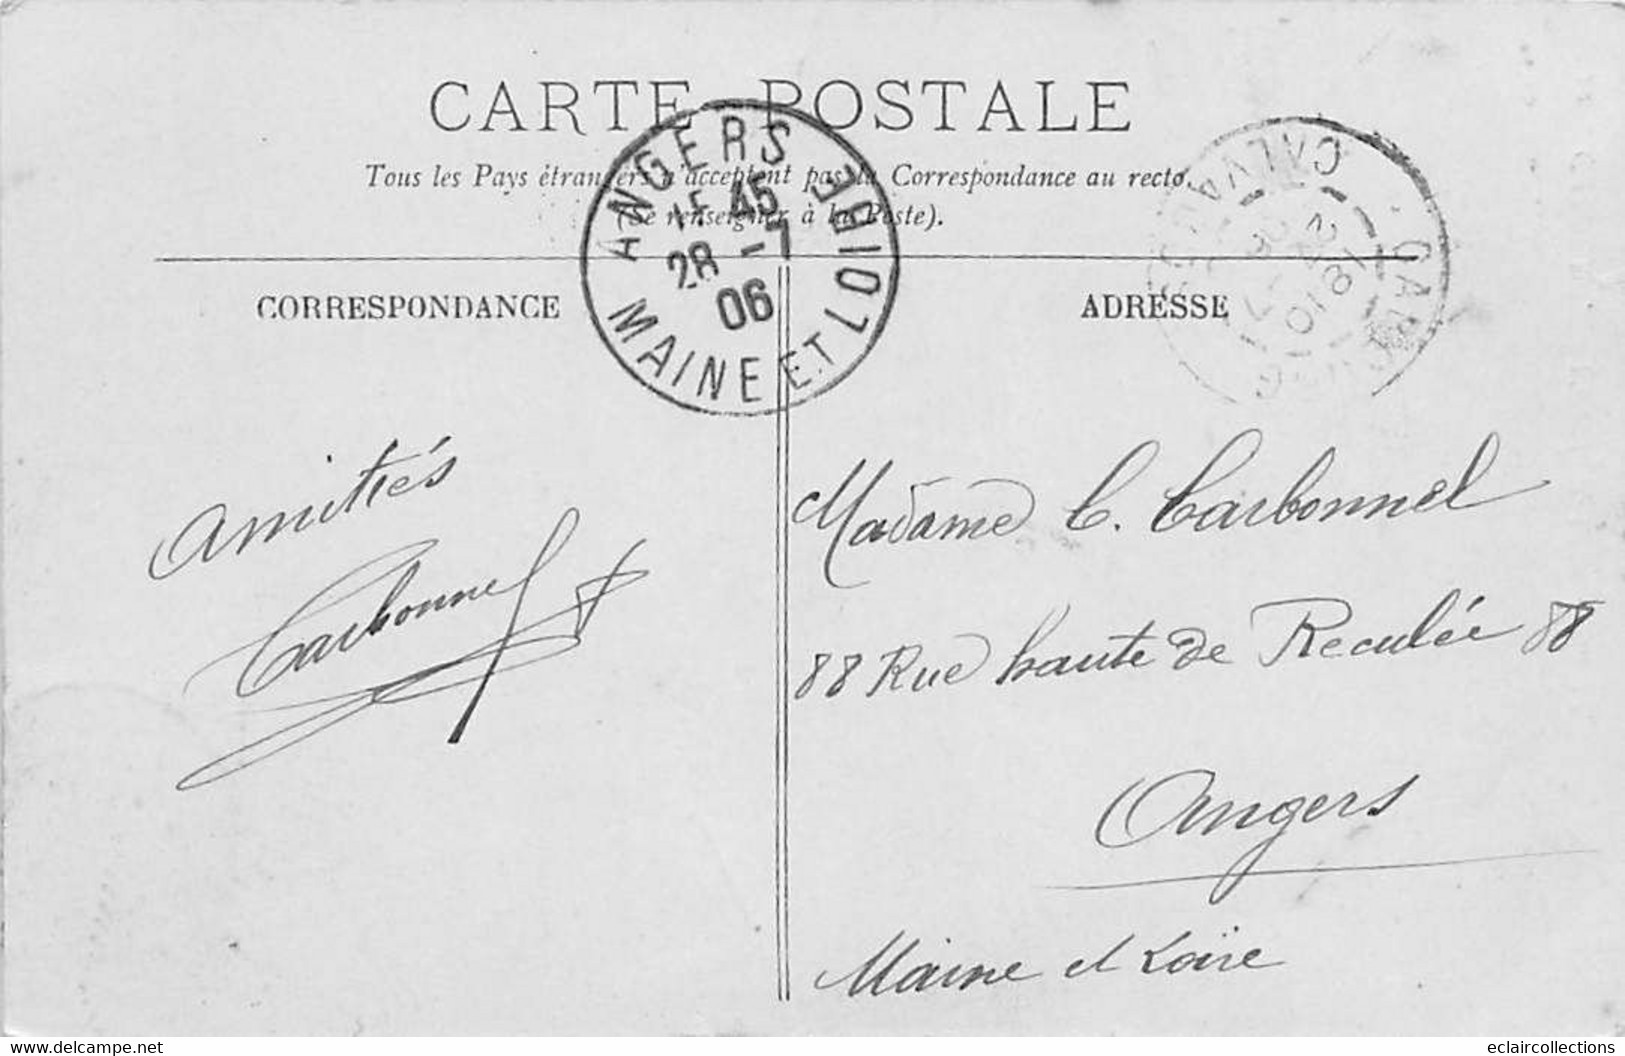 CARTE POSTALE
Tous les Pays étrangers n'acceptent pas la Correspondance au recto.
(Se renseigner à la Poste).
ANGERS
45
28 -7
06
MAINE ET LOIRE
CALVADOS
CORRESPONDANCE
ADRESSE
Amitiés
Carbonnel
Madame C. Carbonnel
88 Rue haute de Reculée 88
Angers
Maine et Loire
delcampe.net
eclaircollections